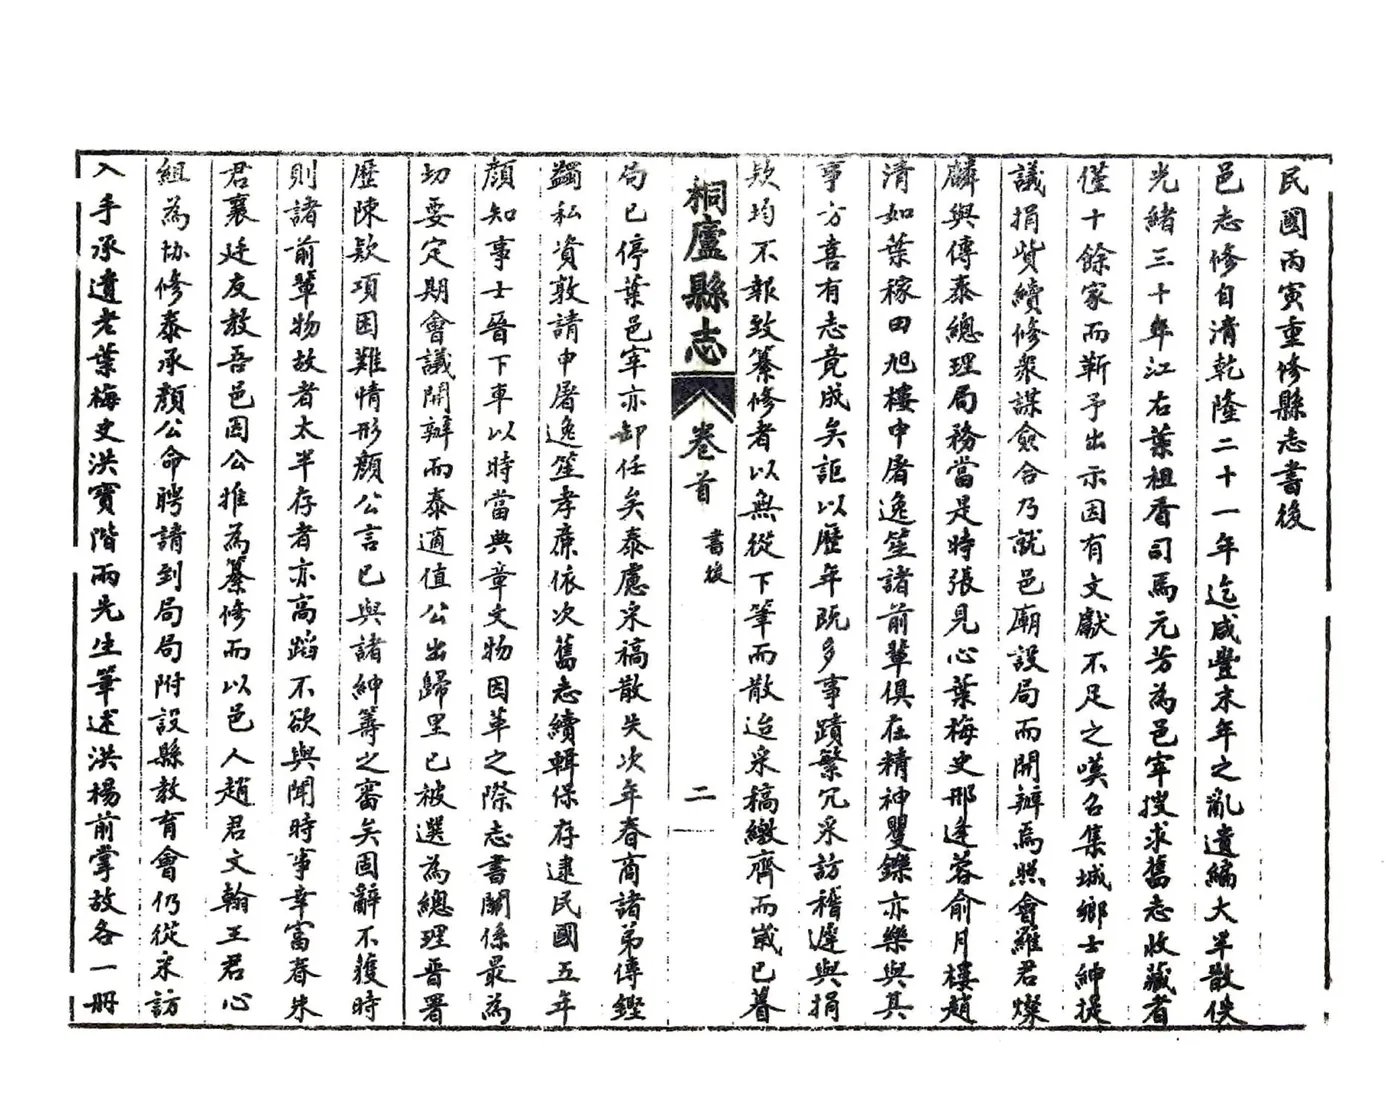 民國丙寅重修縣志書後
邑志修自清乾隆二十一年迄咸豐末年之亂遺編大半散佚
光緒三十年江右葉祖香司馬元芳為邑宰搜求舊志收藏者
僅十餘家而靳予出示因有文獻不足之嘆召集城鄉士紳提
議捐貲續修衆謀僉合乃就邑廟設局而開辦焉照會羅君燦
麟與傳泰總理局務當是時張見心葉梅史邢逢蓉俞月樓趙
清如葉稼田旭樓申屠逸笙諸前輩俱在精神矍鑠亦樂與其
事方喜有志竟成矣詎以歷年既多事蹟繁冗采訪稽遲與捐
欵均不報致纂修者以無從下筆而散迨采稿繳齊而歲已暮
桐廬縣志
卷首
書後
二
局已停葉邑宰亦卸任矣泰慮采稿散失次年春商諸弟傳鏗
蠲私資敦請申屠逸笙孝廉依次舊志續輯保存逮民國五年
顏知事士晉下車以時當典章文物因革之際志書關係最為
切要定期會議開辦而泰適值公出歸里已被選為總理晋署
歷陳欵項困難情形顏公言已與諸紳籌之審矣固辭不獲時
則諸前輩物故者太半存者亦高蹈不欲與聞時事幸富春朱
君襄廷友教吾邑因公推為纂修而以邑人趙君文翰王君心
組為協修泰承顏公命聘請到局局附設縣教育會仍從采訪
入手承遺老葉梅史洪寶階兩先生筆述洪楊前掌故各一冊